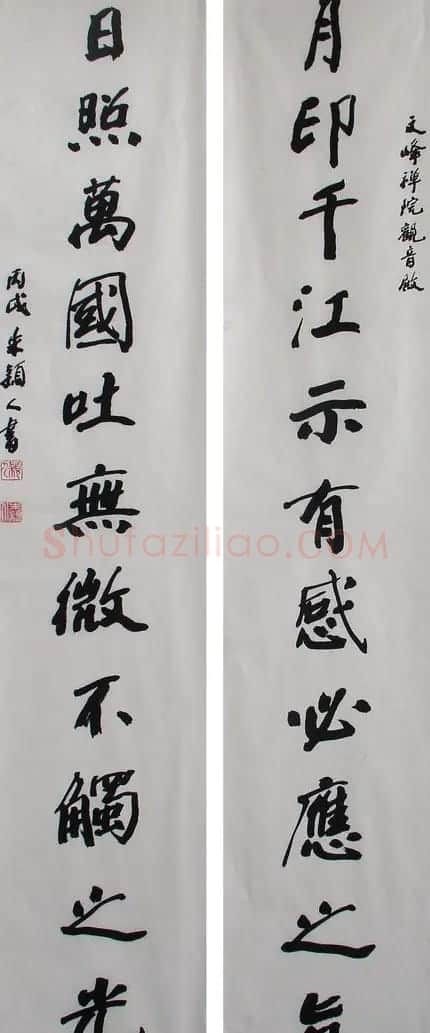 文峰禪院觀音殿
月印千江示有感必應之
日照萬國吐無微不觸之光
丙戌朱穎人書
Shufaziliao.COM